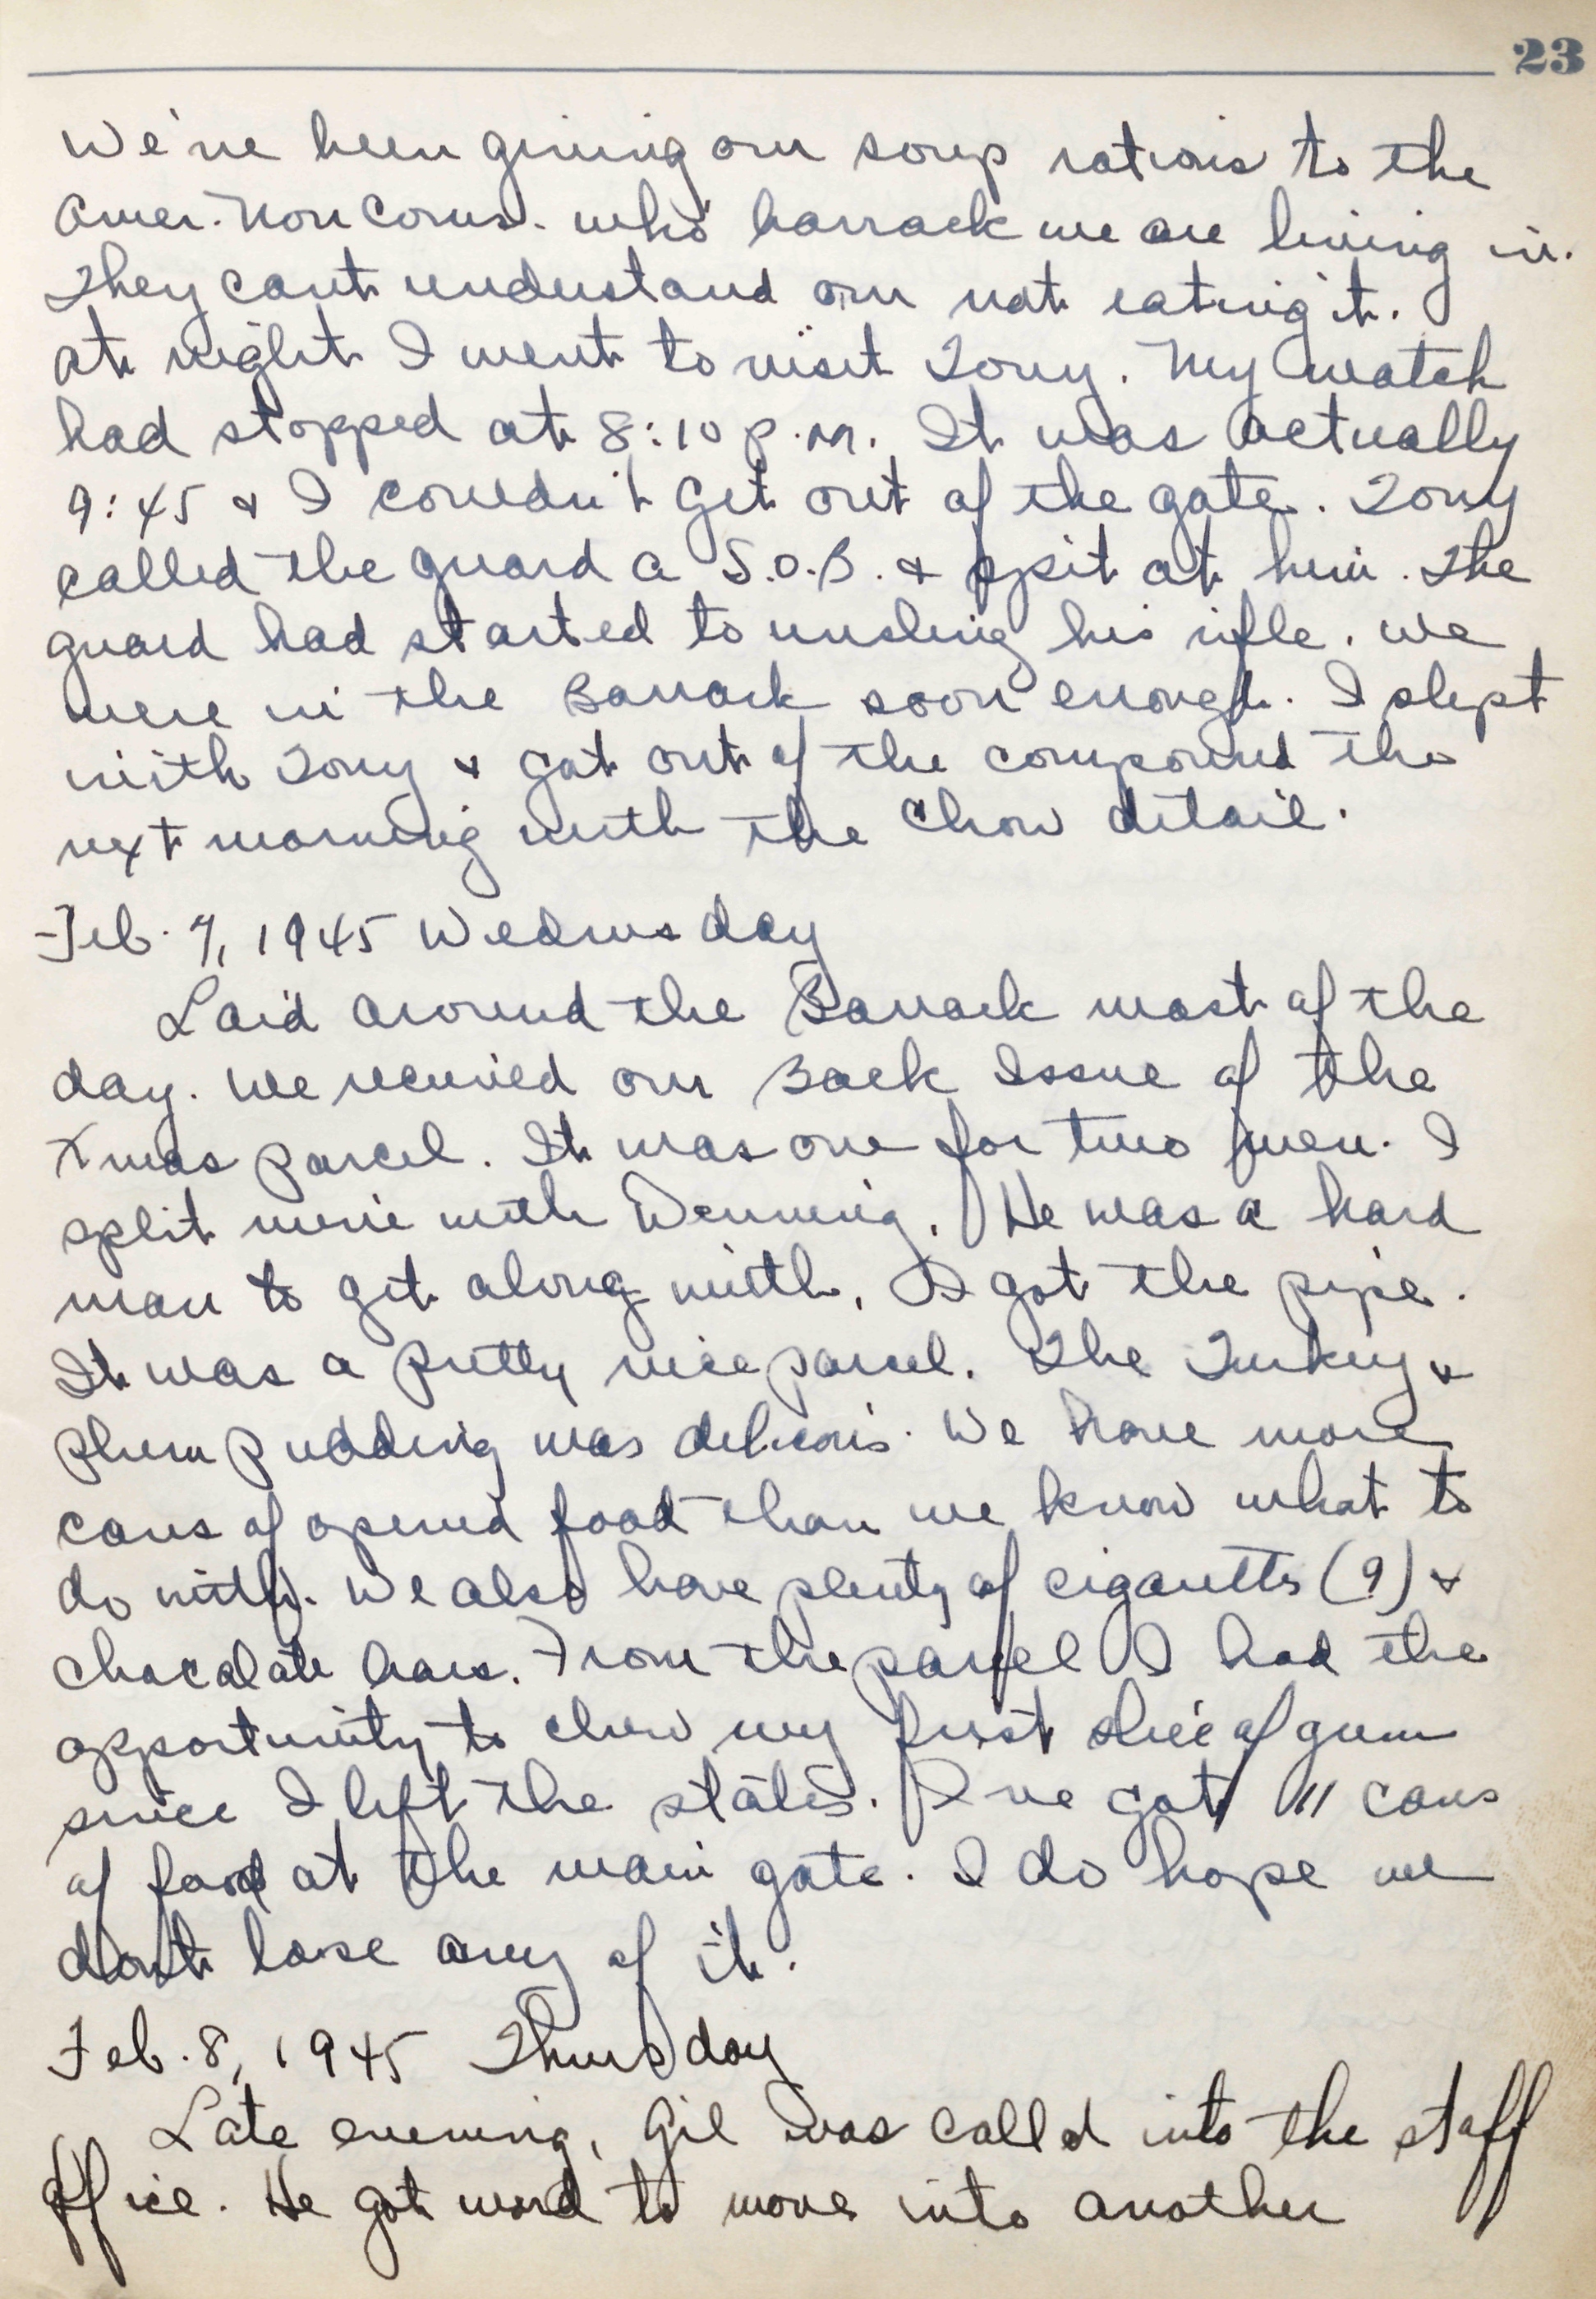 23
We've been giving our soup rations to the
Amer. Non Coms. who barrack we are living in.
They cant understand our not eating it.
At night I went to visit Tony. My watch
had stopped at 8:10 p.m. It was actually
9:45 & I couldn't get out of the gate. Tony
called the guard a S.O.B. & spit at him. The
guard had started to unsling his rifle. We
were in the Barrack soon enough. I slept
with Tony & got out of the compound the
next morning with the Chow detail.
Feb. 7, 1945 Wednesday
Laid around the Barrack most of the
day. We received our Back Issue of the
Xmas parcel. It was one for two men. I
split mine with Denning. He was a hard
man to get along with. I got the pipe.
It was a pretty nice parcel. The Turkey &
plum pudding was delicois. We have more
cans of opened food than we know what to
do with. We also have plenty of cigaretts (9) &
chocalate bars. From the parcel I had the
opportunity to chew my first slice of gum
since I left the states. I've got 11 cans
of food at the main gate. I do hope we
dont lose any of it.
Feb. 8, 1945 Thursday
Late evening, Gil was called into the staff
office. He got word to move into another